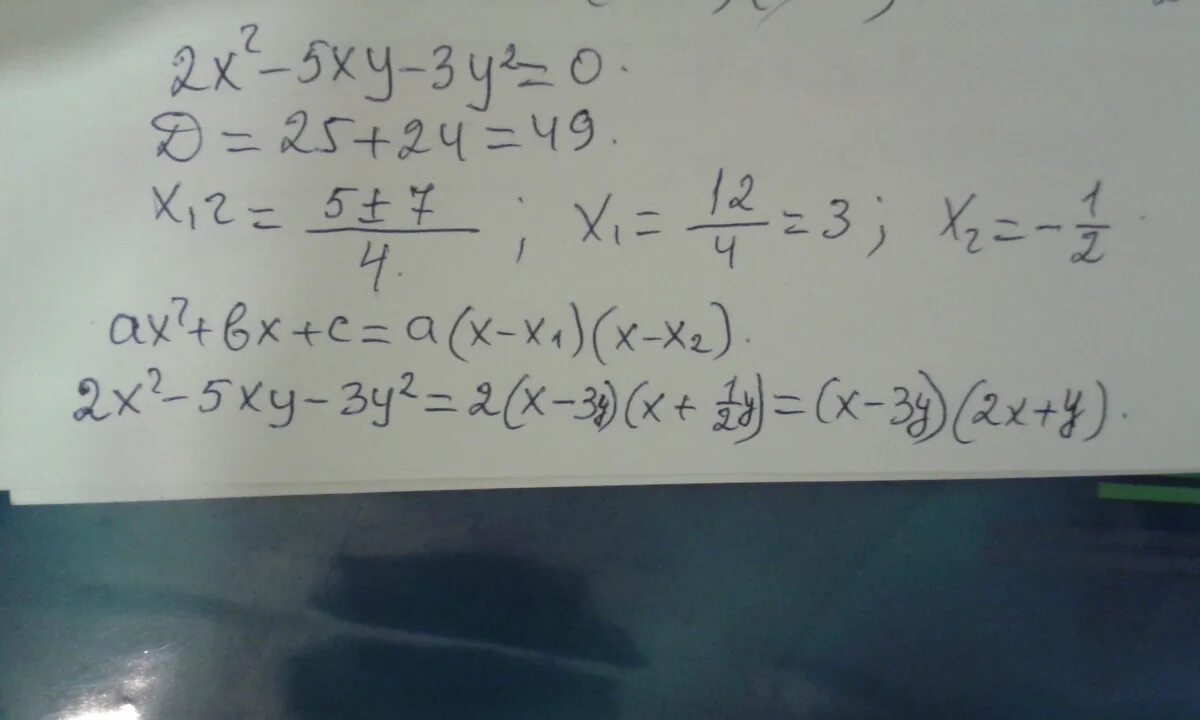 2x² - 5xy - 3y² = 0.
Д = 25 + 24 = 49.
x₁₂ = (5 ± 7)/4. ; x₁ = 12/4 = 3 ; x₂ = -1/2.
ax² + вx + c = a(x - x₁)(x - x₂).
2x² - 5xy - 3y² = 2(x - 3y)(x + 1/2y) = (x - 3y)(2x + y).